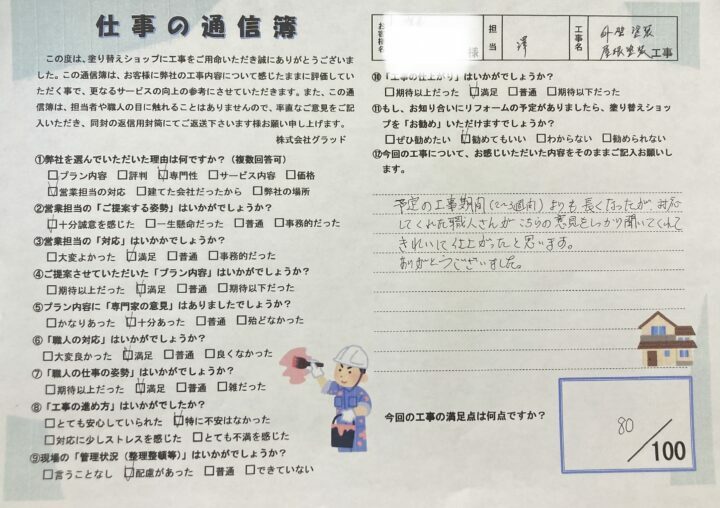 仕事の通信簿
この度は、塗り替えショップに工事をご用命いただき誠にありがとうございま
した。この通信簿は、お客様に弊社の工事内容について感じたままに評価してい
ただく事で、更なるサービスの向上の参考にさせていただきます。また、この通
信簿は、担当者や職人の目に触れることはありませんので、率直なご意見をご記
入いただき、同封の返信用封筒にてご返送下さいます様お願い申し上げます。
株式会社グラッド
①弊社を選んでいただいた理由は何ですか？（複数回答可）
□プラン内容 □評判 ☑専門性 □サービス内容 □価格
☑営業担当の対応 □建てた会社だったから □弊社の場所
②営業担当の「ご提案する姿勢」はいかがでしょうか？
☑十分誠意を感じた □一生懸命だった □普通 □事務的だった
③営業担当の「対応」はいかかでしょうか？
□大変よかった ☑満足 □普通 □事務的だった
④ご提案させていただいた「プラン内容」はいかがでしょうか？
□期待以上だった ☑満足 □普通 □期待以下だった
⑤プラン内容に「専門家の意見」はありましたでしょうか？
□かなりあった ☑十分あった □普通 □殆どなかった
⑥「職人の対応」はいかがでしょうか？
□大変良かった ☑満足 □普通 □良くなかった
⑦「職人の仕事の姿勢」はいかがでしょうか？
□期待以上だった ☑満足 □普通 □雑だった
⑧「工事の進め方」はいかがでしたか？
□とても安心していられた ☑特に不安はなかった
□対応に少しストレスを感じた □とても不満を感じた
⑨現場の「管理状況（整理整頓等）」はいかがでしょうか？
□言うことなし ☑配慮があった □普通 □できていない
お客様名 様 担当 澤 工事名 外壁塗装
屋根塗装工事
⑩「工事の仕上がり」はいかがでしょうか？
□期待以上だった ☑満足 □普通 □期待以下だった
⑪もし、お知り合いにリフォームの予定がありましたら、塗り替えショッ
プを「お勧め」いただけますでしょうか？
□ぜひ勧めたい ☑勧めてもいい □わからない □勧められない
⑫今回の工事について、お感じいただいた内容をそのままご記入お願いし
ます。
予定の工事期間(2〜3週間)よりも長くなったが、対応
してくれた職人さんがこちらの意見をしっかり聞いてくれて
きれいに仕上がったと思います。
ありがとうございました。
今回の工事の満足点は何点ですか？
80/100